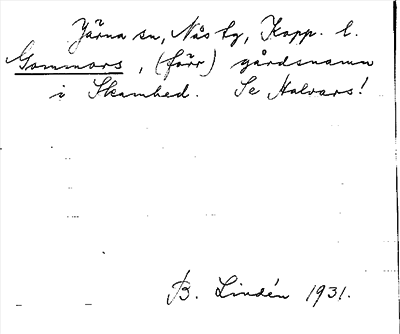 Järna sn, Nås by, Kopp. l.
Gommors, (förr) gårdsnamn
i Skamhed. Se Halvars!
B. Lindén 1931.